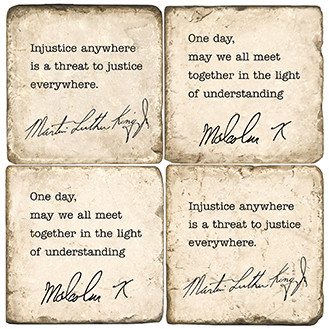 Injustice anywhere
is a threat to justice
everywhere.
Martin Luther King Jr
One day,
may we all meet
together in the light
of understanding
Malcolm X
One day,
may we all meet
together in the light
of understanding
Malcolm X
Injustice anywhere
is a threat to justice
everywhere.
Martin Luther King Jr